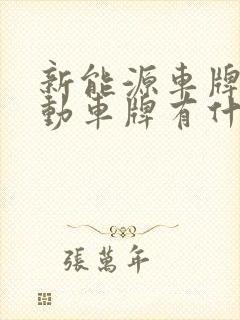 新能源車牌
動車牌有什
張萬年